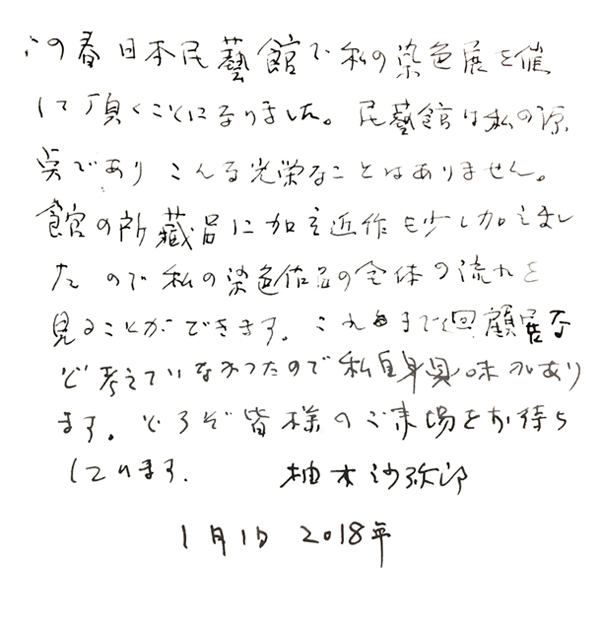 この春日本民藝館で私の染色展を催
して頂くことになりました。民藝館は私の源
点であり こんな光栄なことはありません。
館の所蔵品に加え近作も少し加えまし
た ので 私の染色作品の全体の流れを
見ることができます。これまで回顧展な
ど考えていなかったので私自身興味があり
ます。どうぞ皆様のご来場をお待ち
しています。 柚木沙弥郎
1月1日 2018年